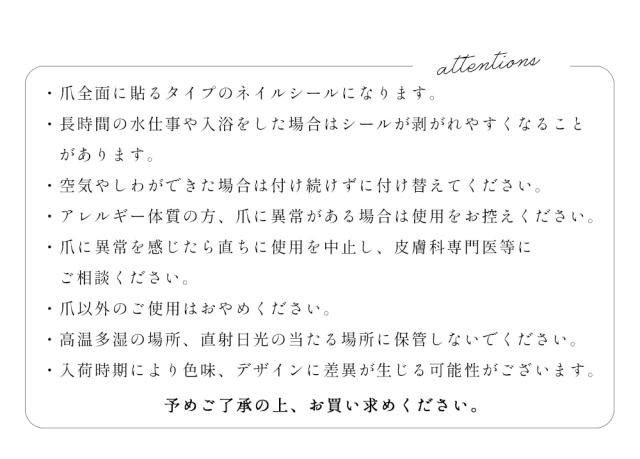 attentions
・爪全面に貼るタイプのネイルシールになります。
・長時間の水仕事や入浴をした場合はシールが剥がれやすくなること
があります。
・空気やしわができた場合は付け続けずに付け替えてください。
・アレルギー体質の方、爪に異常がある場合は使用をお控えください。
・爪に異常を感じたら直ちに使用を中止し、皮膚科専門医等に
ご相談ください。
・爪以外のご使用はおやめください。
・高温多湿の場所、直射日光の当たる場所に保管しないでください。
・入荷時期により色味、デザインに差異が生じる可能性がございます。
予めご了承の上、お買い求めください。